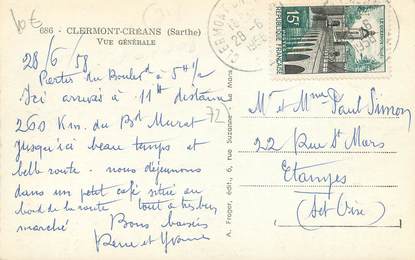 10€
686 - CLERMONT-CRÉANS (Sarthe)
VUE GÉNÉRALE
28/6/58
Parties du Boulevd à 5H 1/2
Ici arrivés à 11H distance
260 Km. du Bd Murat
jusqu'ici beau temps et
belle route - nous déjeunons
dans un petit café situé au
bord de la route tout à très bon
marché Bons baisers
Pierre et Yvonne
72
A. Froger, édit., 6, rue Suzanne Le Mans
28-6
1958
15F
RÉPUBLIQUE FRANÇAISE
LE QUESNOY
Mr et Mme Paul Simon
22 Rue St Mars
Etampes
(Set Oise)